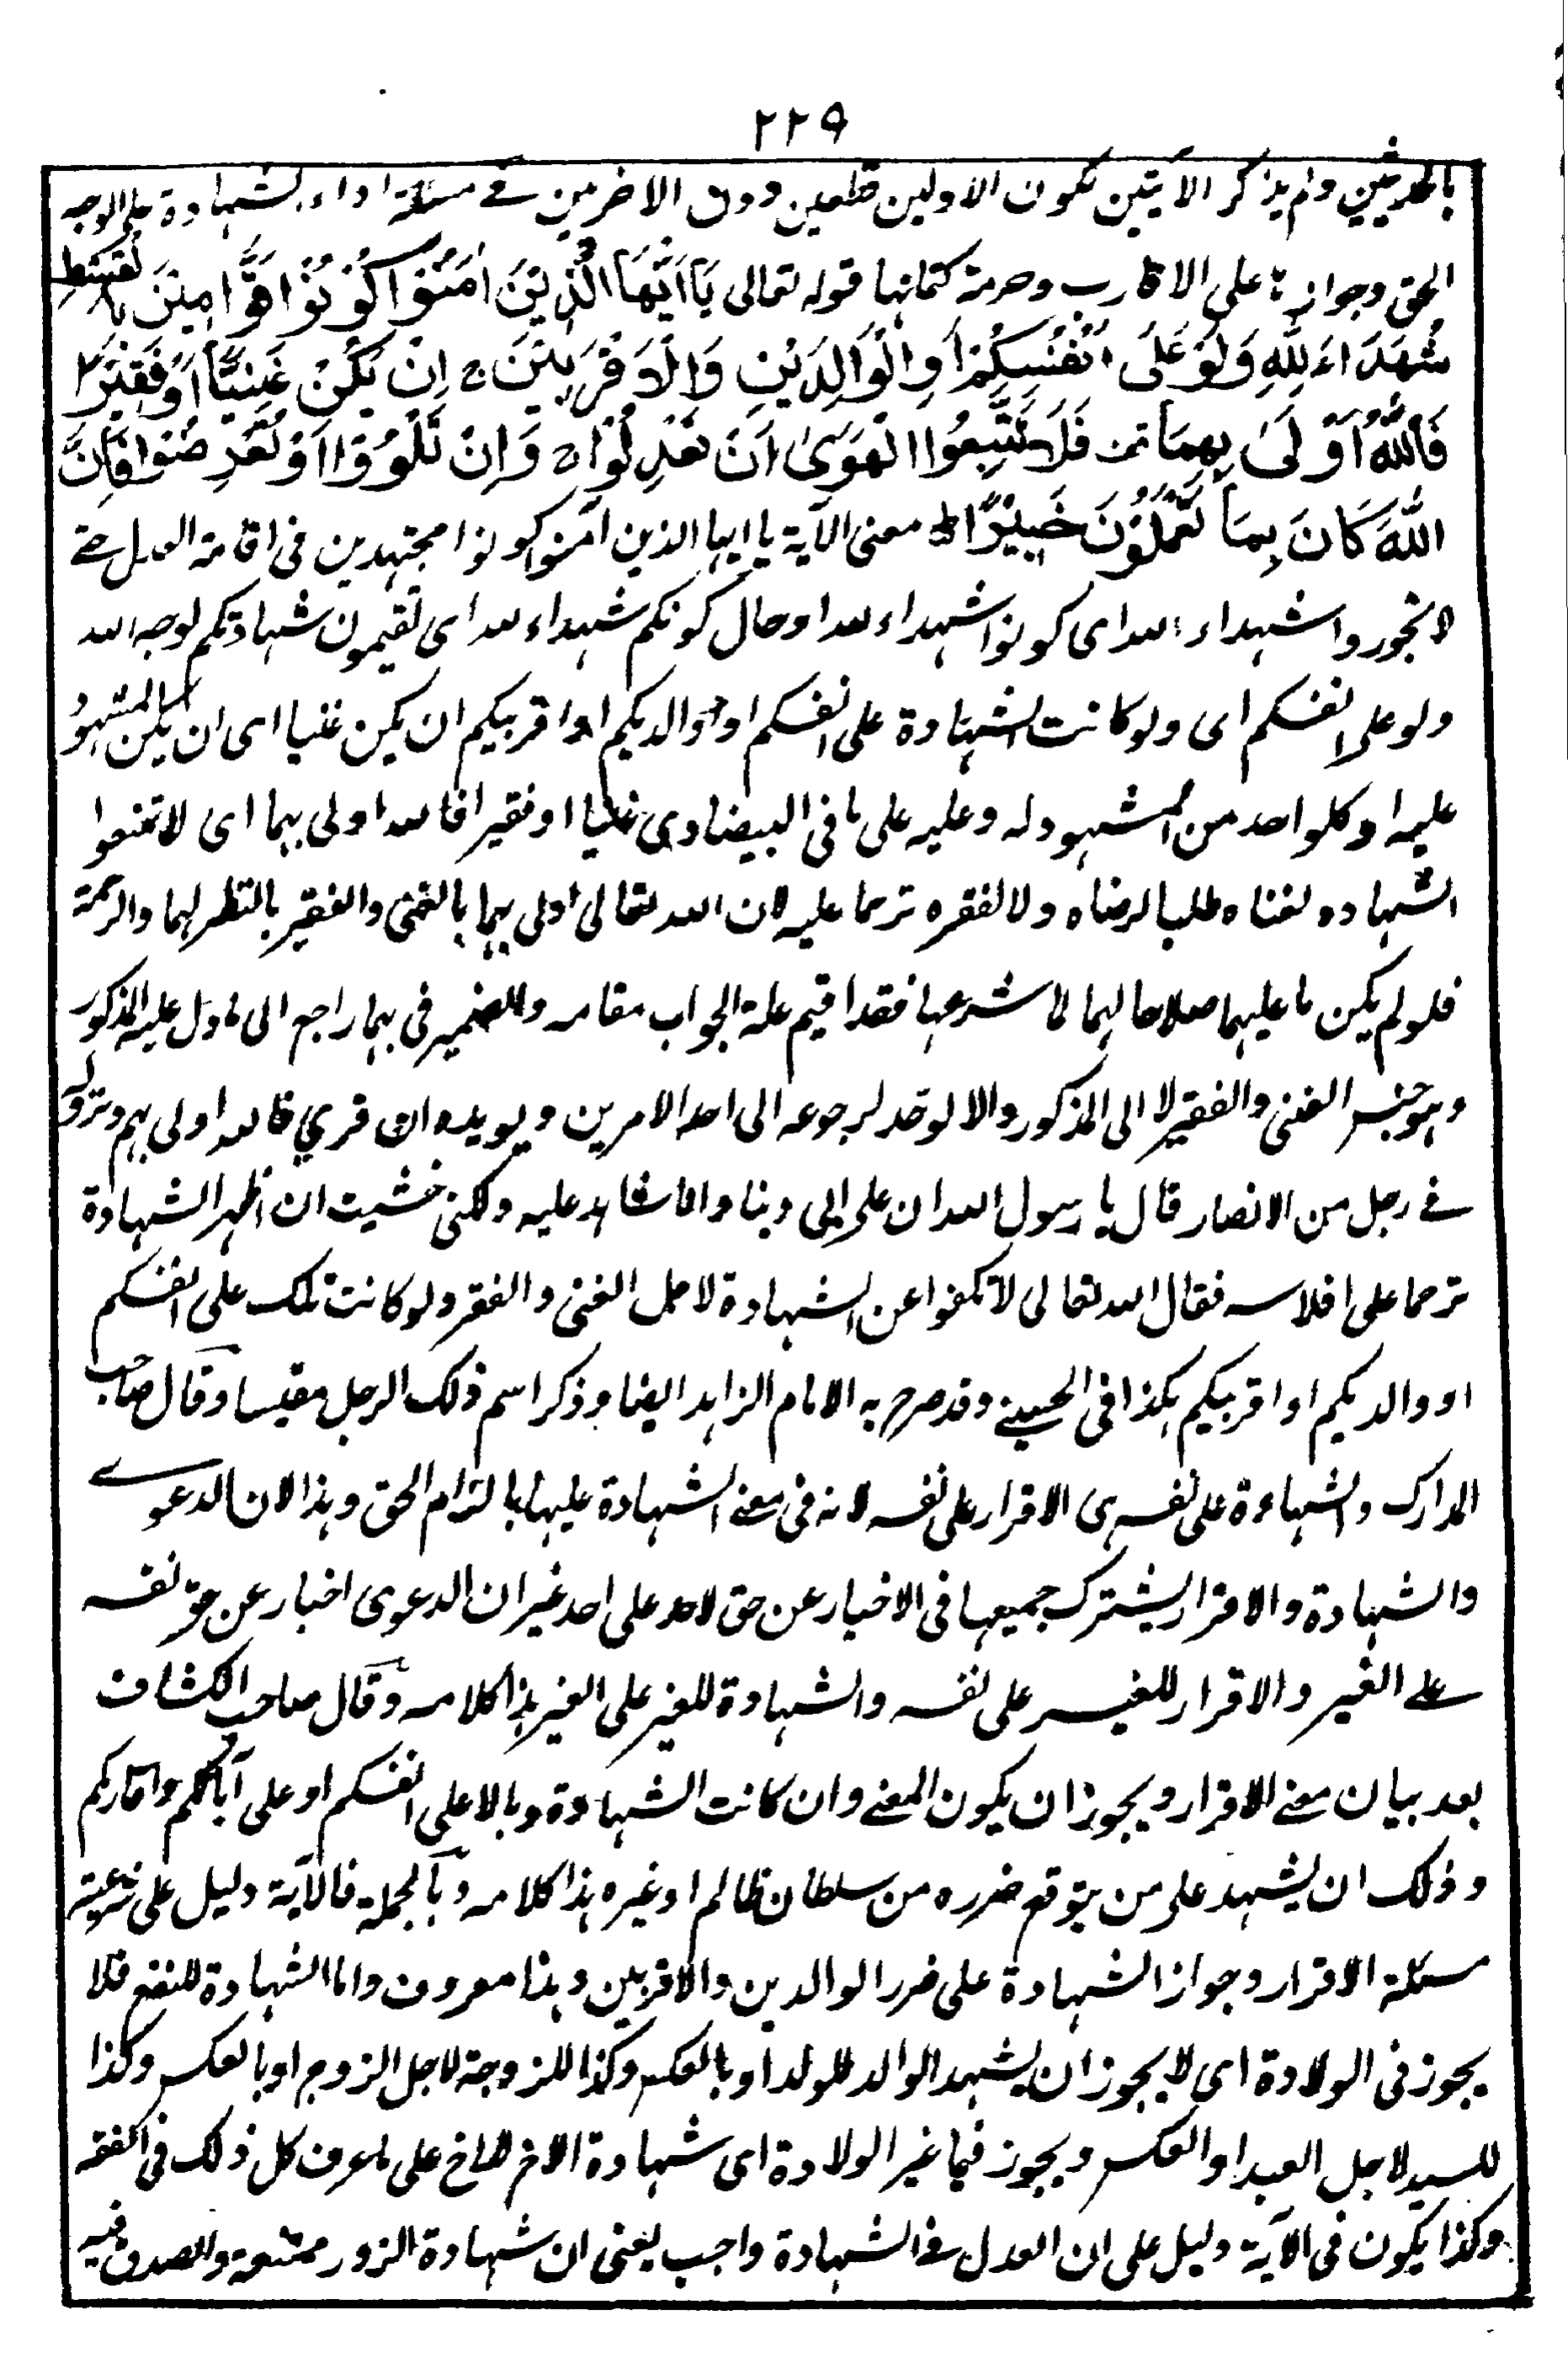 ٢٢٩
بالحديثين ولم يذكر الآيتين لكون الاولين قطعيين دون الاخرين فے مسئلة اداء الشهادة على الوجه
الحق وجوازها على الاقارب وحرمة كتمانها قوله تعالى يَا اَيُّهَا الَّذِيْنَ اٰمَنُوْا كُوْنُوْا قَوَّامِيْنَ بِالْقِسْطِ
شُهَدَاءَ لِلّٰهِ وَلَوْ عَلٰى اَنْفُسِكُمْ اَوِ الْوَالِدَيْنِ وَالْاَقْرَبِيْنَ ج اِنْ يَكُنْ غَنِيًّا اَوْ فَقِيْرًا
فَاللّٰهُ اَوْلٰى بِهِمَا قف فَلَا تَتَّبِعُوا الْهَوٰى اَنْ تَعْدِلُوْا ج وَاِنْ تَلْوُوْا اَوْ تُعْرِضُوْا فَاِنَّ
اللّٰهَ كَانَ بِمَا تَعْمَلُوْنَ خَبِيْرًا ط معنى الآية يا ايها الذين آمنوا كونوا مجتهدين فى اقامة العدل حتے
لا تجوروا شهداء لله اى كونوا شهداء لله او حال كونكم شهداء لله اى تقيمون شهادتكم لوجه الله
ولو على انفسكم اى ولو كانت الشهادة على انفسكم او والديكم او اقربيكم ان يكن غنيا اى ان يكن المشهود
عليه او كل واحد من المشهود له وعليه على ما فى البيضاوى غنيا او فقيرا فالله اولى بهما اى لا تمنعوا
الشهادة لغناه طلبا لرضاه ولا لفقره ترحما عليه لان الله تعالى اولى بهما بالغنى والفقير بالنظر لهما والرحمة
فلو لم يكن ما عليهما صلاحا لهما لما شرعها فقد اقيم علة الجواب مقامه والضمير فى بهما راجع الى ما دل عليه المذكور
وهو جنس الغنى والفقير لا الى المذكور والا لوحد لرجوعه الى احد الامرين ويويده ان قرئ فالله اولى بهم ونزوله
فے رجل من الانصار قال يا رسول الله ان على ابى دينا وانا شاهد عليه ولكنى خشيت ان اظهر الشهادة
ترحما على افلاسه فقال الله تعالى لا تكفوا عن الشهادة لاجل الغنى والفقر ولو كانت تلك على انفسكم
او والديكم او اقربيكم هكذا فى الحسينے وقد صرح به الامام الزاهد ايضا وذكر اسم ذلك الرجل مقيسا وقال صاحب
المدارك والشهادة على نفسه هى الاقرار على نفسه لانه فى معنے الشهادة عليها بالتزام الحق وهذا لان الدعوے
والشهادة والاقرار يشترك جميعها فى الاخبار عن حق لاحد على احد غير ان الدعوى اخبار عن حق نفسه
علے الغير والاقرار للغير على نفسه والشهادة للغير على الغير هذا كلامه وقال صاحب الكشاف
بعد بيان معنے الاقرار ويجوز ان يكون المعنے وان كانت الشهادة وبالا على انفسكم او على آبائكم واقاربكم
وذلك ان يشهد على من يتوقع ضرره من سلطان ظالم او غيره هذا كلامه وبالجملة فالآية دليل على شرعية
مسئلة الاقرار وجواز الشهادة على ضرر الوالدين والاقربين وهذا معروف واما الشهادة للنفع فلا
يجوز فى الولادة اى لا يجوز ان يشهد الوالد للولد او بالعكس وكذا للزوجة لاجل الزوج او بالعكس وكذا
للسيد لاجل العبد او العكس ويجوز فيما غير الولادة اى شهادة الاخ للاخ على ما عرف كل ذلك فى الفقه
وكذا يكون فى الآية دليل على ان العدل فے الشهادة واجب يعنى ان شهادة الزور ممتنعة والصدق فيه